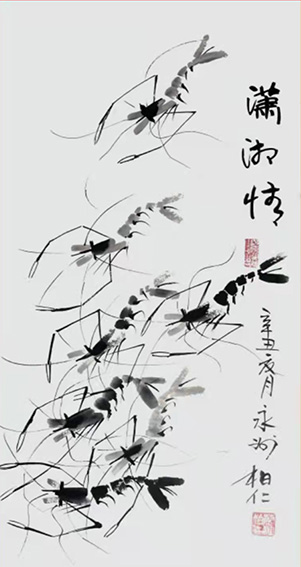 潇湘情
辛丑夏月永州柏仁